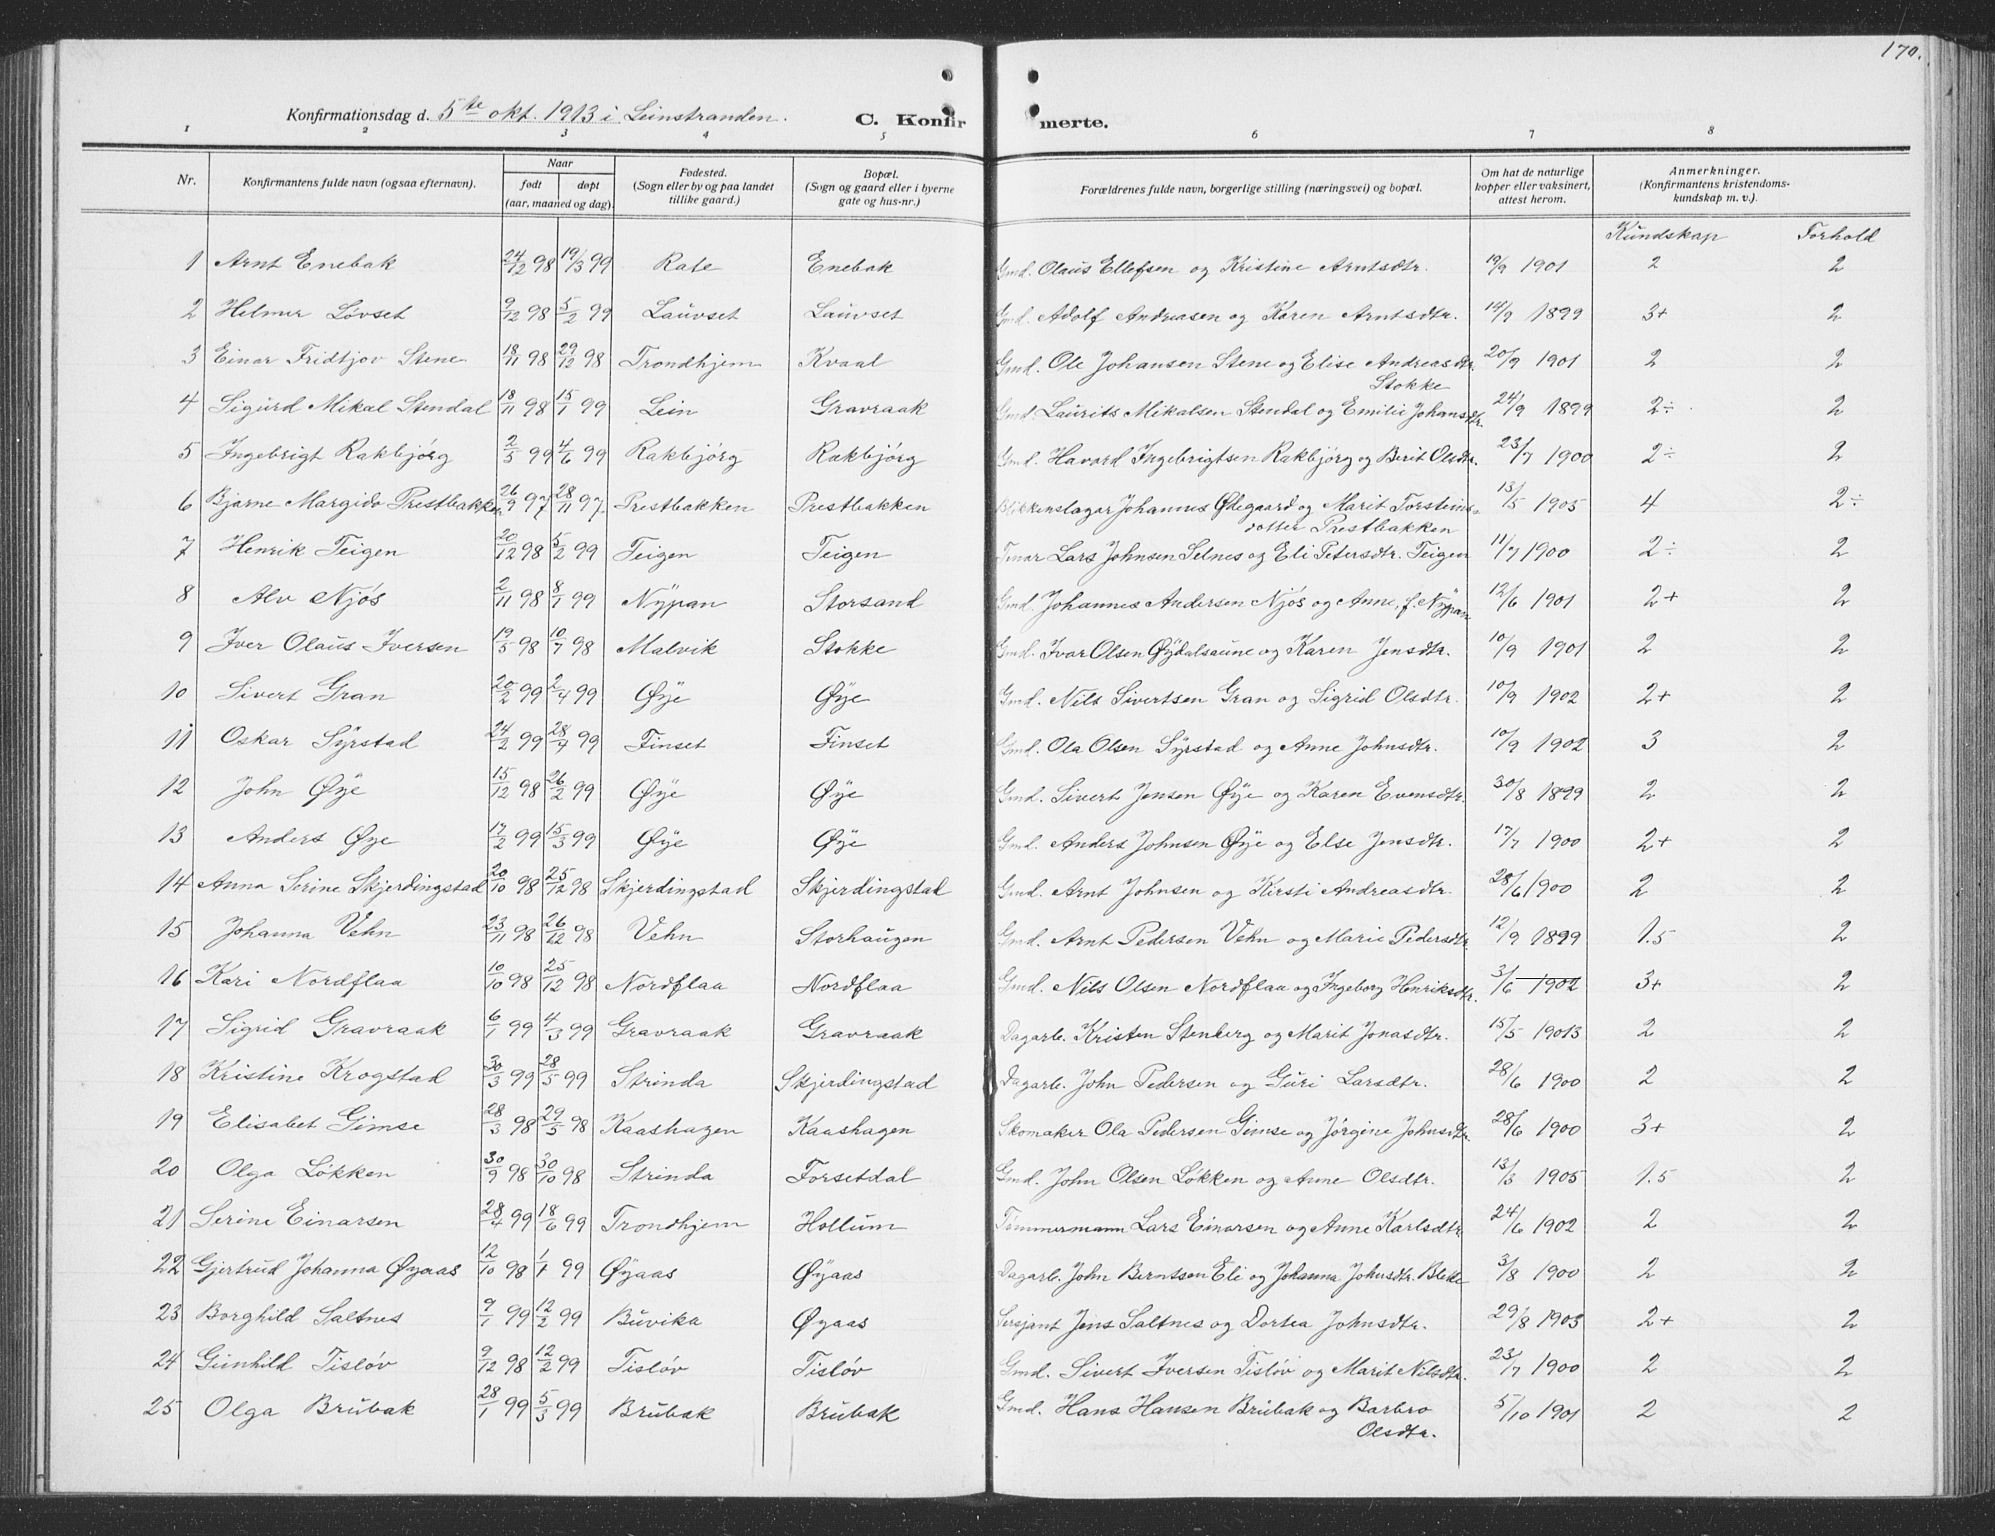 170.
Konfirmationsdag d. 5te okt. 1913 i Leinstranden. C. Konfirmerte.
1 2 3 4 5 6 7 8
Nr. | Konfirmantens fulde navn (ogsaa efternavn). | Naar født døpt (aar, maaned og dag). | Fødested. (Sogn eller by og paa landet tillike gaard.) | Bopæl. (Sogn og gaard eller i byerne gate og hus-nr.) | Forældrenes fulde navn, borgerlige stilling (næringsvei) og bopæl. | Om hat de naturlige kopper eller vaksinert, attest herom. | Anmerkninger. (Konfirmantens kristendomskundskap m. v.).
Kundskap Forhold
1 Arnt Enebak 24/12 98 19/3 99 Rate Enebak Gmd. Olaus Ellefsen og Kristine Arntsdtr. 19/9 1901 2 2
2 Helmer Løvset 9/12 98 5/2 99 Lauvset Lauvset Gmd. Adolf Andreasen og Karen Arntsdtr. 14/9 1899 3+ 2
3 Einar Fridtjov Stene 18/11 98 29/12 98 Trondhjem Kvaal Gmd. Ole Johansen Stene og Elise Andreasdtr. Stokke 20/9 1901 2 2
4 Sigurd Mikal Stendal 18/11 98 15/1 99 Lein Gravraak Gmd. Laurits Mikalsen Stendal og Emilie Johansdtr. 24/9 1899 2÷ 2
5 Ingebrigt Rakbjørg 2/5 99 4/6 99 Rakbjørg Rakbjørg Gmd. Havard Ingebrigtsen Rakbjørg og Berit Olsdtr. 23/7 1900 2÷ 2
6 Bjarne Margido Prestbakken 26/9 97 28/11 97 Prestbakken Prestbakken Blikkenslager Johannes Ødegaard og Marit Torsteinsdotter Prestbakken 13/5 1905 4 2÷
7 Henrik Teigen 20/12 98 5/2 99 Teigen Teigen Tenar Lars Johnsen Selnes og Eli Petersdtr. Teigen 11/7 1900 2÷ 2
8 Alv Njøs 2/11 98 8/1 99 Nypan Storsand Gmd. Johannes Andersen Njøs og Anne, f. Nypan 12/6 1901 2+ 2
9 Iver Olaus Iversen 19/5 98 10/7 98 Malvik Stokke Gmd. Ivar Olsen Øydalsaune og Karen Jensdtr. 10/9 1901 2 2
10 Sivert Gran 20/2 99 2/4 99 Øye Øye Gmd. Nils Sivertsen Gran og Sigrid Olsdtr. 10/9 1902 2+ 2
11 Oskar Syrstad 24/2 99 28/4 99 Finset Finset Gmd. Ola Olsen Syrstad og Anne Johnsdtr. 10/9 1902 3 2
12 John Øye 15/12 98 26/2 99 Øye Øye Gmd. Sivert Jensen Øye og Karen Evensdtr. 30/8 1899 2 2
13 Anders Øye 17/2 99 15/3 99 Øye Øye Gmd. Anders Johnsen Øye og Else Jensdtr. 17/7 1900 2+ 2
14 Anna Serine Skjerdingstad 20/10 98 25/12 98 Skjerdingstad Skjerdingstad Gmd. Arnt Johnsen og Kirsti Andreasdtr. 28/6 1900 2 2
15 Johanna Vehn 23/11 98 26/12 98 Vehn Storhaugen Gmd. Arnt Pedersen Vehn og Marie Pedersdtr. 12/9 1899 1.5 2
16 Kari Nordflaa 10/10 98 25/12 98 Nordflaa Nordflaa Gmd. Nils Olsen Nordflaa og Ingeborg Henriksdtr. 3/6 1902 3+ 2
17 Sigrid Gravraak 6/1 99 4/3 99 Gravraak Gravraak Dagarb. Kristen Stenberg og Marit Jonasdtr. 15/5 19013 2 2
18 Kristine Krogstad 30/3 99 28/5 99 Strinda Skjerdingstad Dagarb. John Pedersen og Guri Larsdtr. 28/6 1900 2 2
19 Elisabet Gimse 28/3 98 29/5 98 Kaashagen Kaashagen Skomaker Ola Pedersen Gimse og Jørgine Johnsdtr. 28/6 1900 3+ 2
20 Olga Løkken 30/9 98 30/10 98 Strinda Forsetdal Gmd. John Olsen Løkken og Anne Olsdtr. 13/3 1905 1.5 2
21 Serine Einarsen 28/4 99 18/6 99 Trondhjem Hollum Tømmermann Lars Einarsen og Anne Karlsdtr. 24/6 1902 2 2
22 Gjertrud Johanna Øyaas 12/10 98 1/1 99 Øyaas Øyaas Dagarb. John Berntsen Eli og Johanna Johnsdtr. 3/8 1900 2 2
23 Borghild Saltnes 9/1 99 12/2 99 Buvika Øyaas Sersjant Jens Saltnes og Dortea Johnsdtr. 29/8 1903 2+ 2
24 Gunhild Tisløv 9/12 98 12/2 99 Tisløv Tisløv Gmd. Sivert Iversen Tisløv og Marit Nilsdtr. 23/7 1900 2 2
25 Olga Brubak 28/1 99 5/3 99 Brubak Brubak Gmd. Hans Hansen Brubak og Barbro Olsdtr. 5/10 1901 2 2